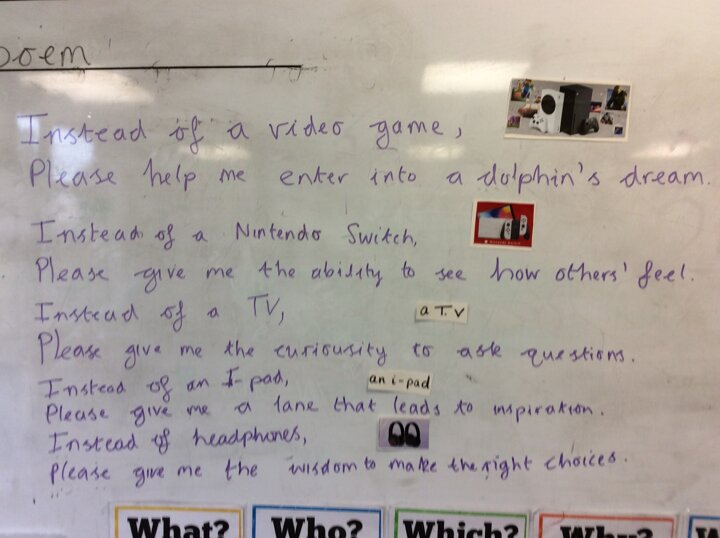 poem
Instead of a video game,
Please help me enter into a dolphin's dream.
Instead of a Nintendo Switch,
Please give me the ability to see how others' feel.
Instead of a TV,
a T.V
Please give me the curiousity to ask questions.
Instead of an I-pad,
an i-pad
Please give me a lane that leads to inspiration.
Instead of headphones,
Please give me the wisdom to make the right choices.
What? Who? Which? Why?